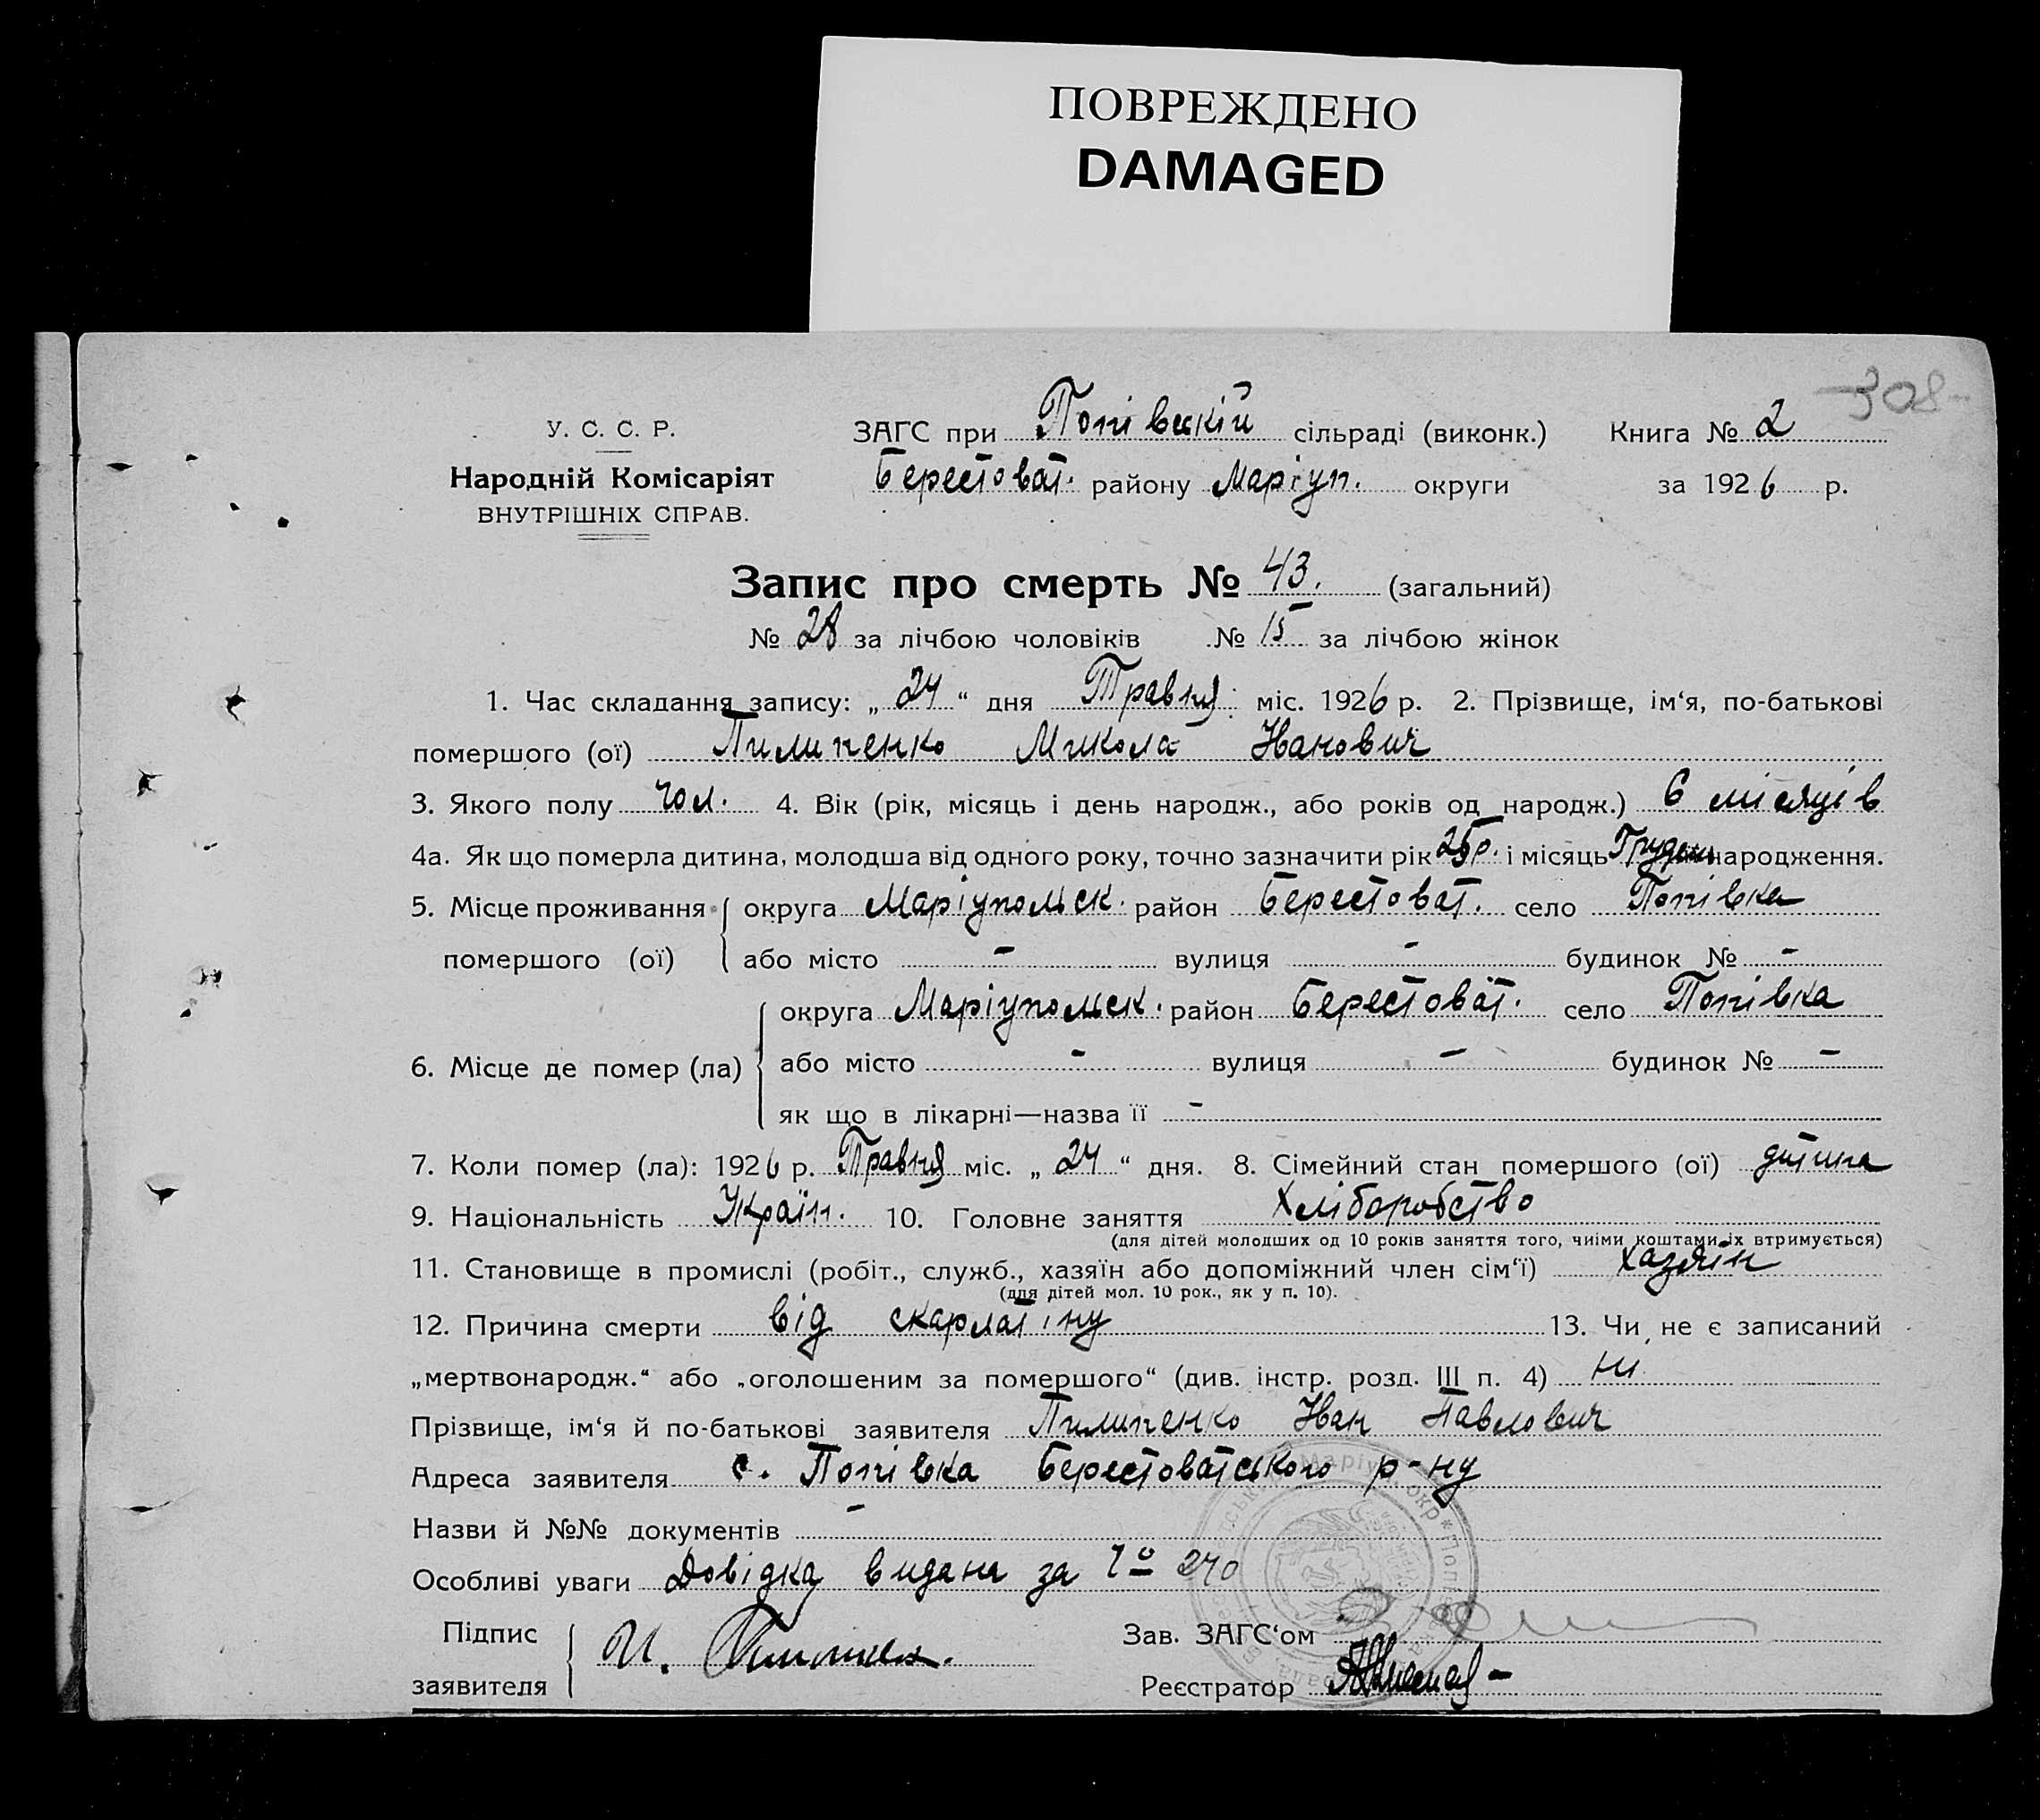 ПОВРЕЖДЕНО
DAMAGED
308
У. С. С. Р.
Народній Комісаріят
ВНУТРІШНІХ СПРАВ.
ЗАГС при Попівській сільраді (виконк.) Книга № 2
Берестоват. району Маріуп. округи за 1926 р.
Запис про смерть № 43. (загальний)
№ 28 за лічбою чоловіків № 15 за лічбою жінок
1. Час складання запису: „24“ дня Травня міс. 1926 р. 2. Прізвище, ім‘я, по-батькові
помершого (ої) Пилипенко Микола Іванович
3. Якого полу чол. 4. Вік (рік, місяць і день народж., або років од народж.) 6 місяців
4а. Як що померла дитина, молодша від одного року, точно зазначити рік 25р. і місяць Грудень народження.
5. Місце проживання помершого (ої) округа Маріупольск. район Берестоват. село Попівка
або місто – вулиця – будинок № –
6. Місце де помер (ла) округа Маріупольск. район Берестоват. село Попівка
або місто – вулиця – будинок № –
як що в лікарні—назва її –
7. Коли помер (ла): 1926 р. Травня міс. „24“ дня. 8. Сімейний стан помершого (ої) дитина
9. Національність Україн. 10. Головне заняття Хліборобство
(для дітей молодших од 10 років заняття того, чиїми коштами їх втримується)
11. Становище в промислі (робіт., служб., хазяїн або допоміжний член сім‘ї) хазяїн
(для дітей мол. 10 рок., як у п. 10).
12. Причина смерти від скарлатіну 13. Чи не є записаний
„мертвонародж.“ або „оголошеним за помершого“ (див. інстр. розд. III п. 4) ні
Прізвище, ім‘я й по-батькові заявителя Пилипенко Іван Павлович
Адреса заявителя с. Попівка Берестоватського р-ну
Назви й №№ документів –
Особливі уваги Довідка видана за № 240
Підпис заявителя И.
Зав. ЗАГС‘ом
Реєстратор